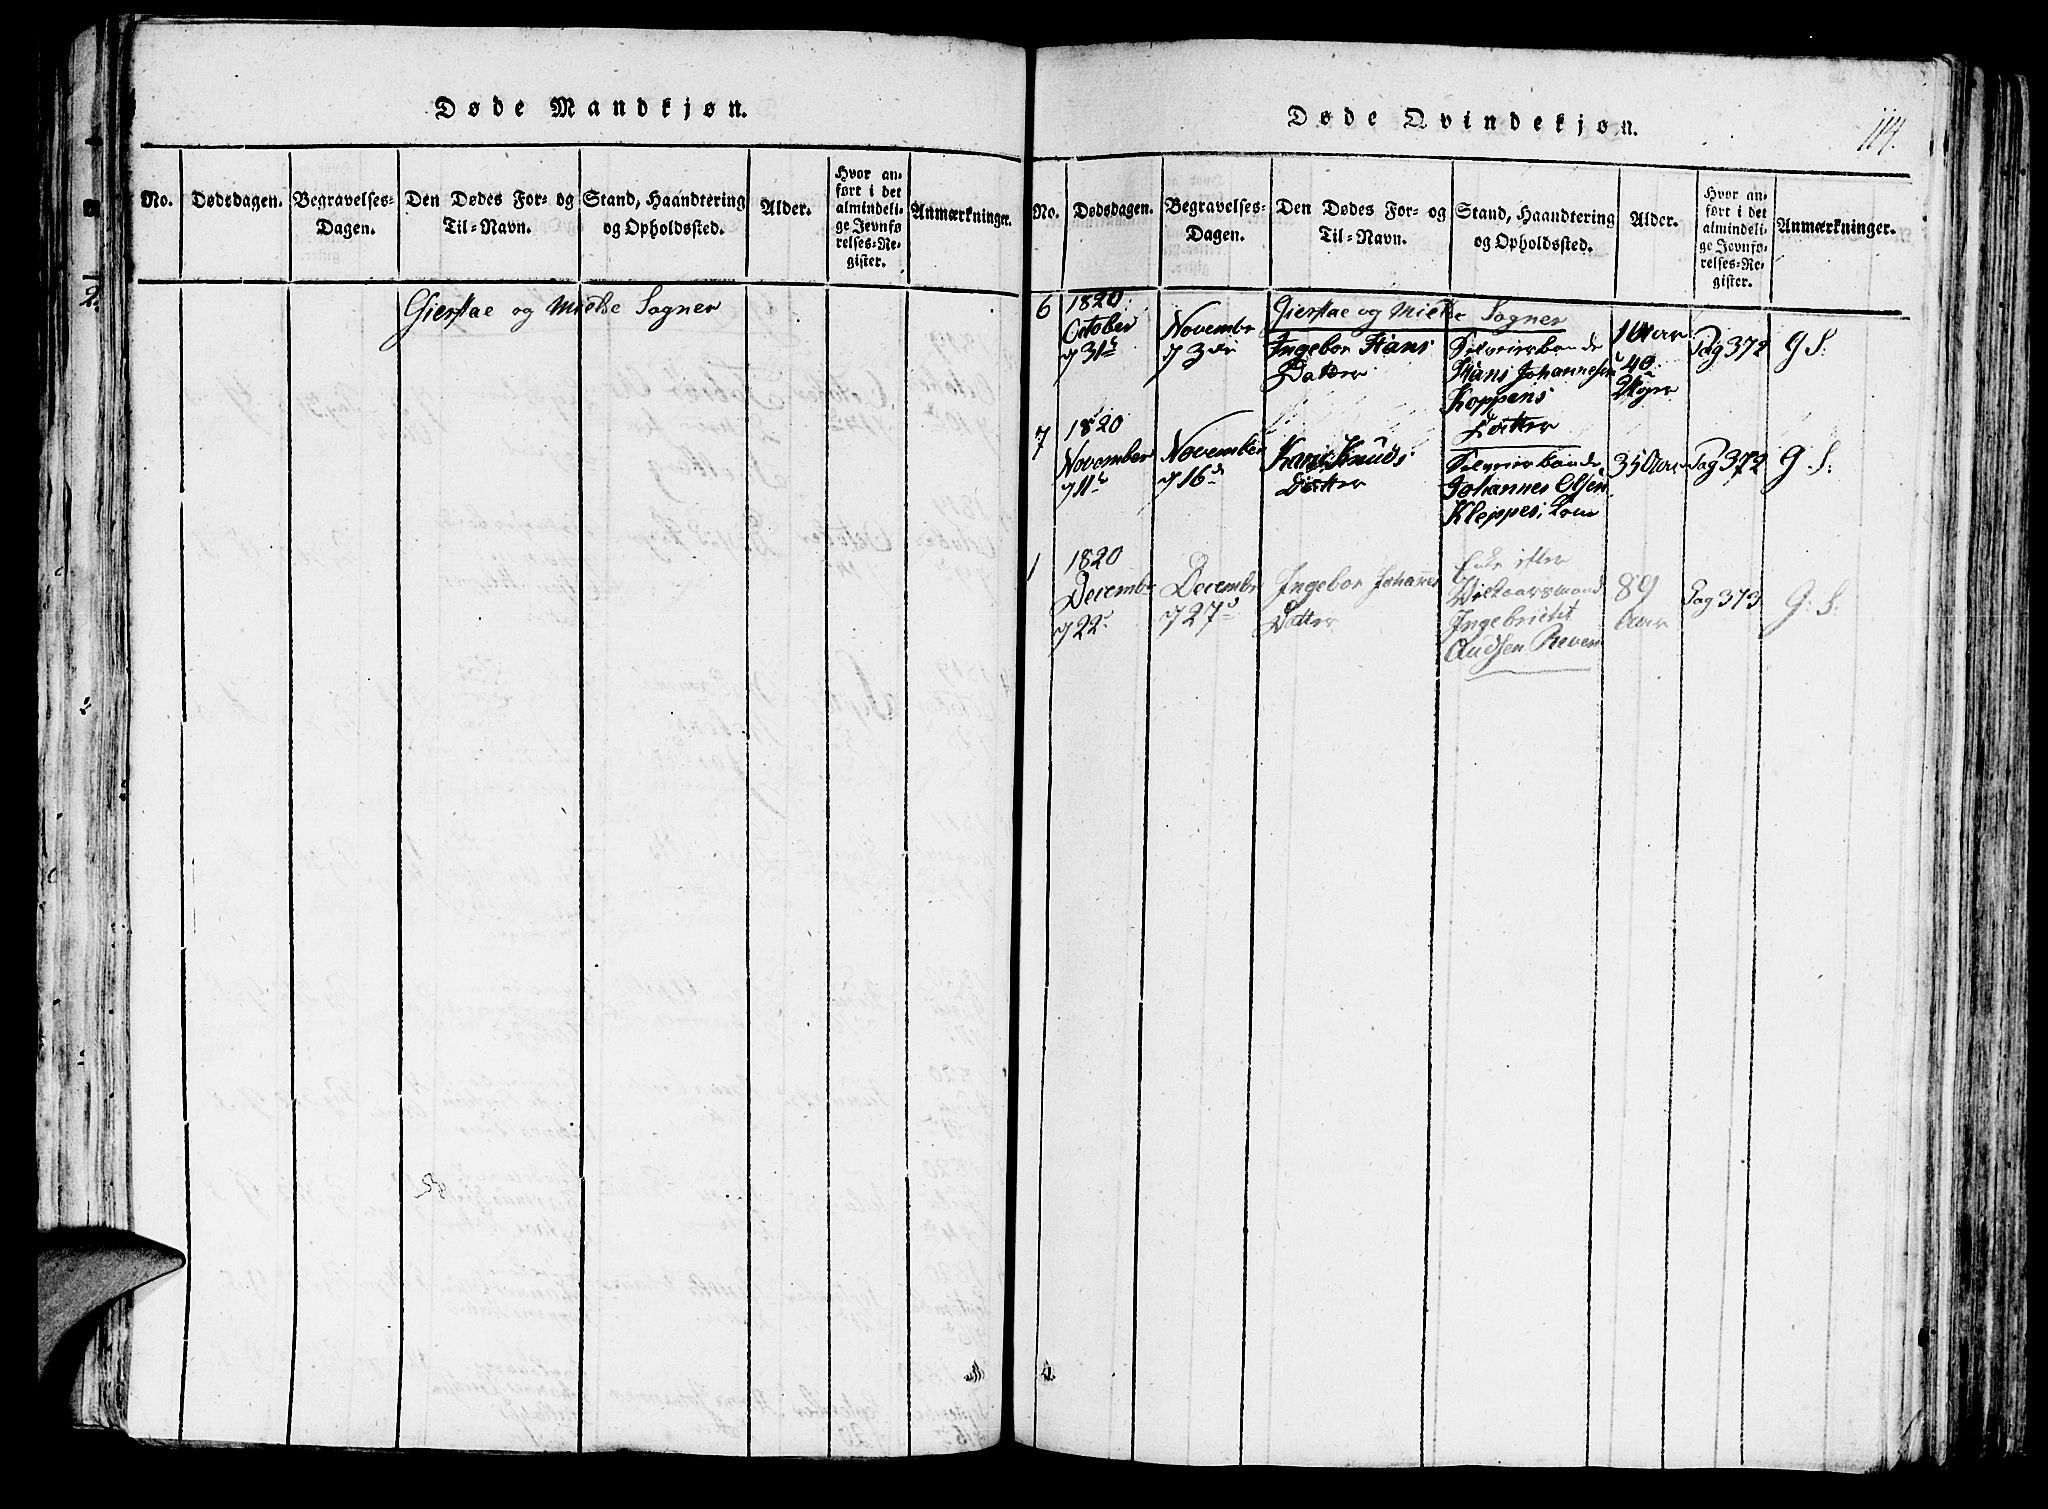 Døde Mandkjøn.
No.
Dødsdagen.
Begravelses-
Dagen.
Den Dødes For- og
Til-Navn.
Stand, Haandtering
og Opholdssted.
Alder.
Hvor an-
ført i det
almindeli-
ge Jevnfø-
relses-Re-
gister.
Anmærkninger.
Gierstae og Mielde Sogner
Døde Qvindekjøn.
114.
No.
Dødsdagen.
Begravelses-
Dagen.
Den Dødes For- og
Til-Navn.
Stand, Haandtering
og Opholdssted.
Alder.
Hvor an-
ført i det
almindeli-
ge Jevnfø-
relses-Re-
gister.
Anmærkninger.
Gierstae og Mielde Sogner
6
1820
October
31
Novembr
3
Ingebor Hans
Datter
Hans Johannesen
Koppens
Datter
1 Aar
40
Uger
Pag 372
G S:
7
1820
November
11
November
16
Kari Knuds
Datter
Johannes Olsen
Kleppes Kone
35 Aar
Pag 372
G. S:
1
1820
Decembr
22
Decembr
27
Ingebor Johannes
Datter
Enke efter
Vilkaarsmand
Ingebricht
Audsen Reven
89
Aar
Pag 373
G: S: